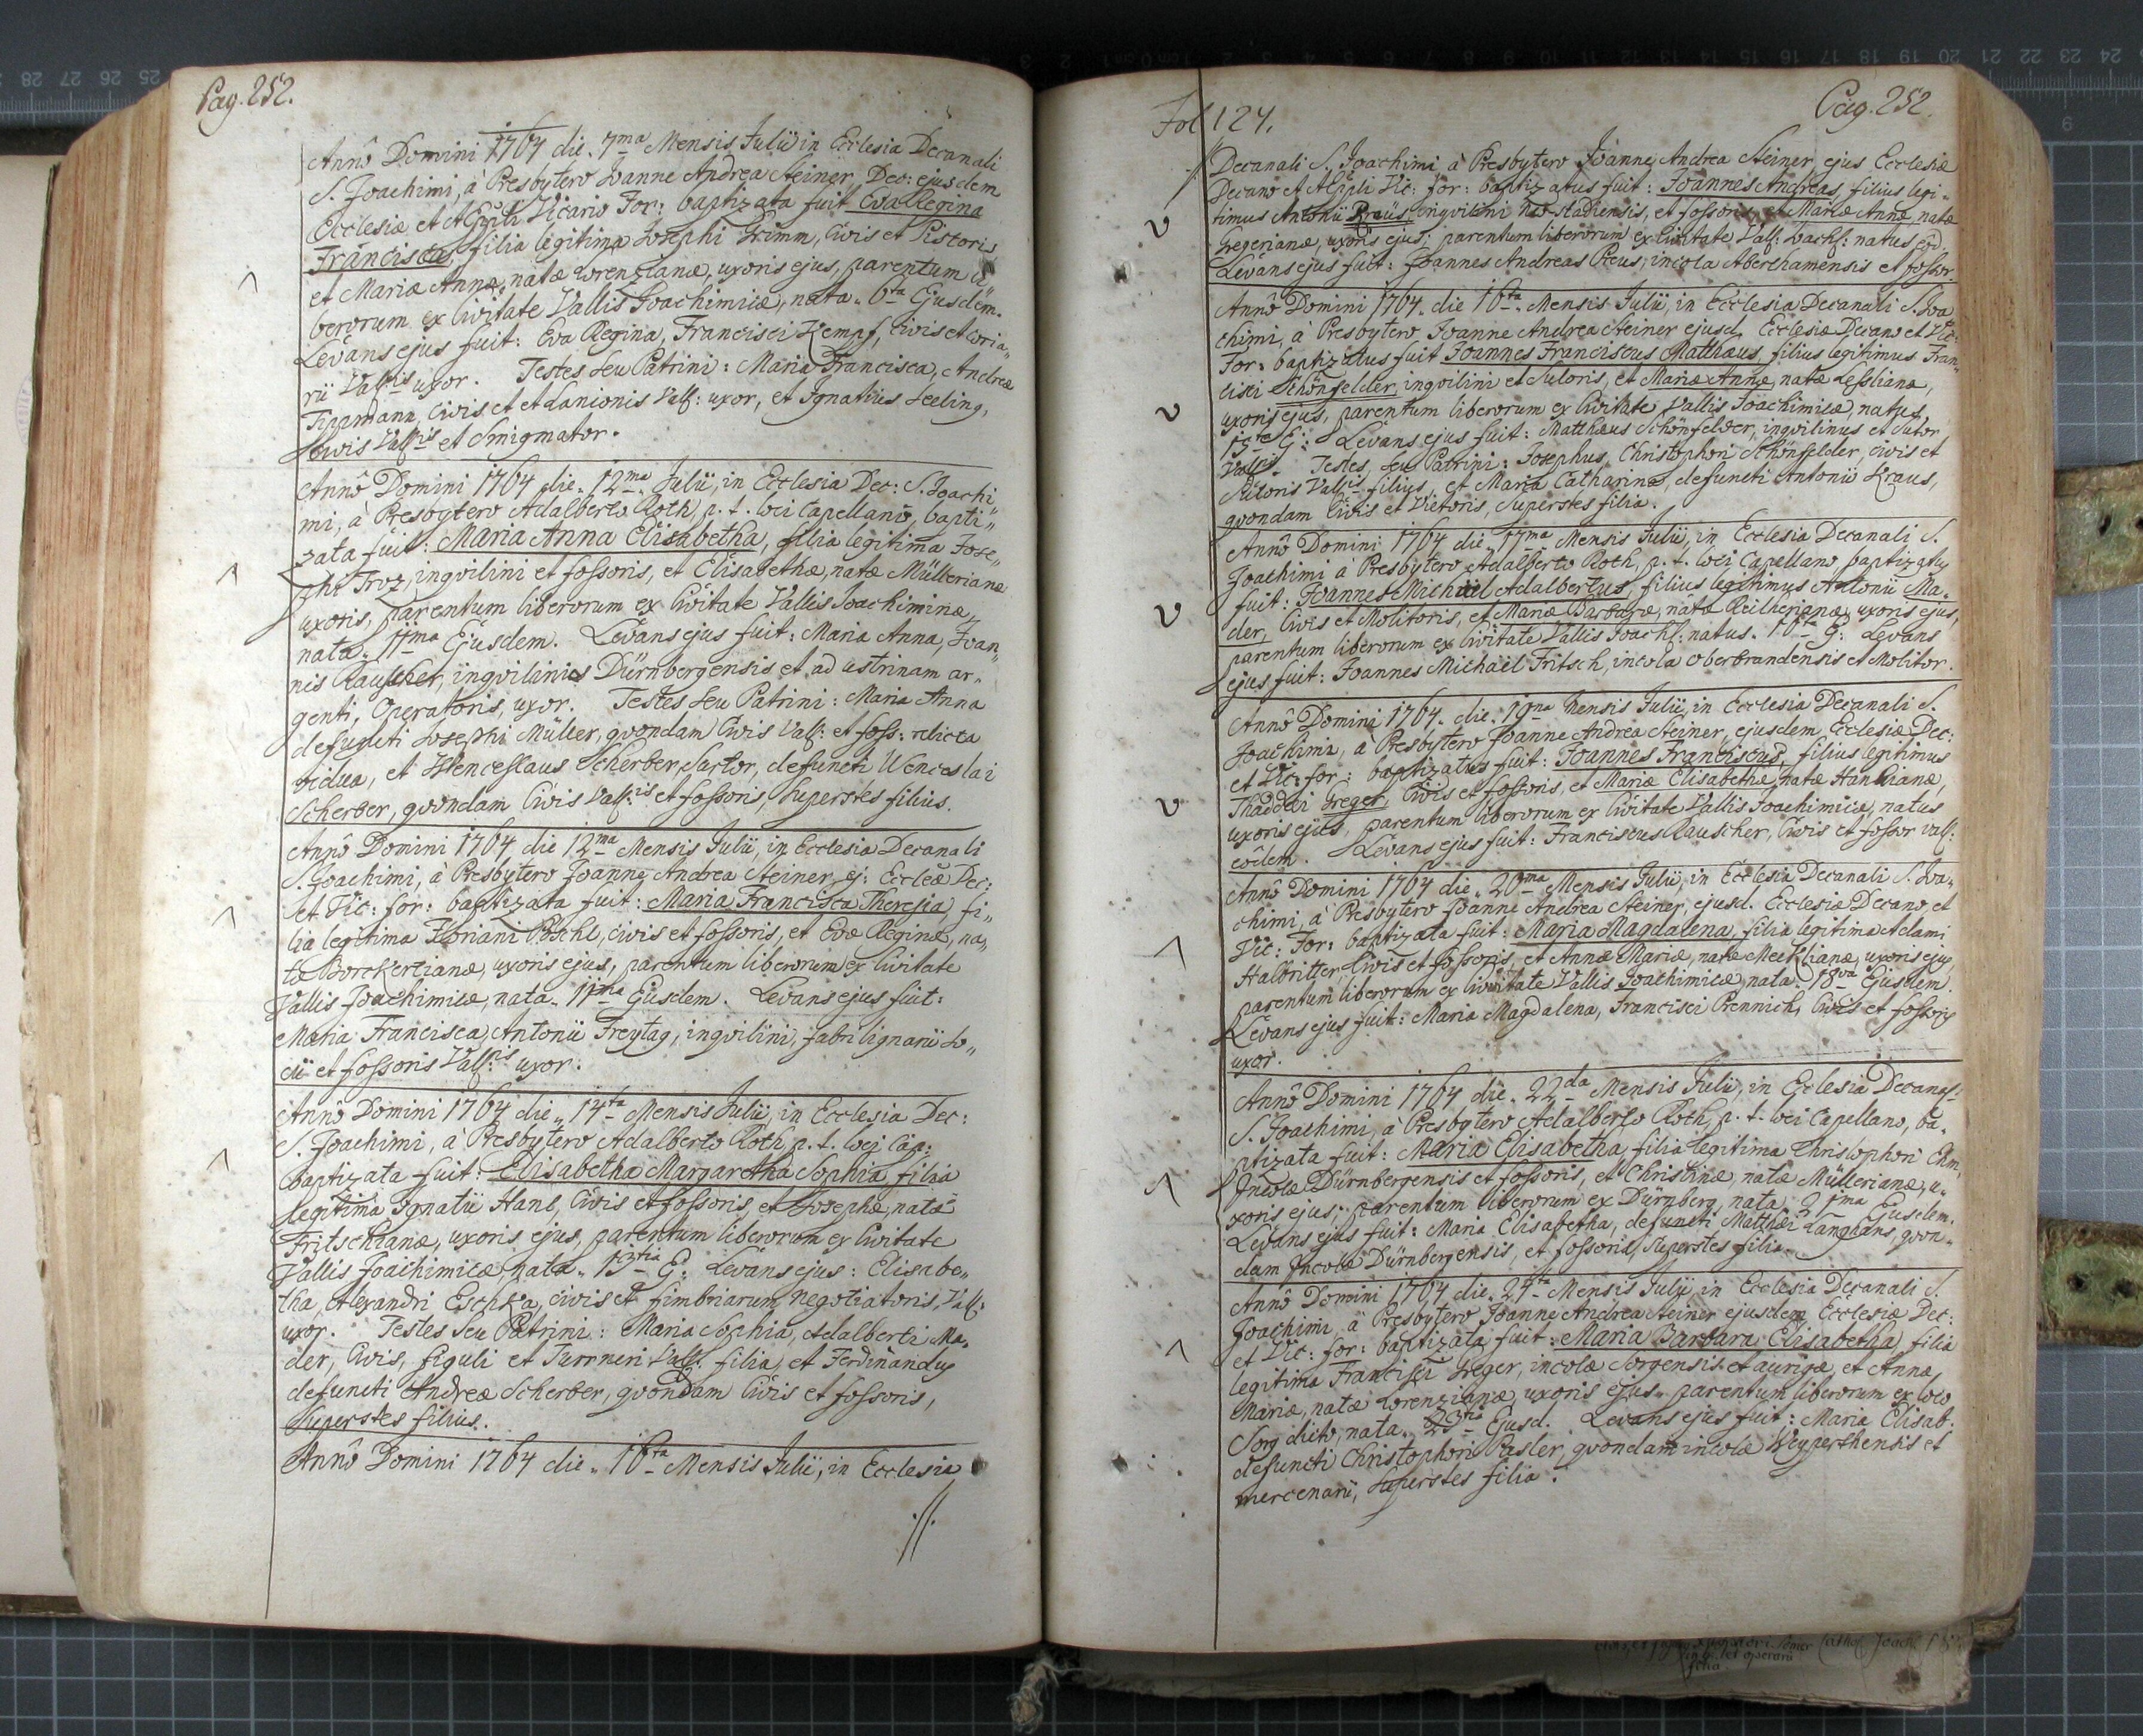 Pag. 252.
Annô Domini 1764 die. 7ma Mensis Julii in Ecclesia Decanali
S. Joachimi, à Presbytero Joanne Andrea Steiner Dec: ejusdem
Ecclesiæ et AEppli Vicario For: baptizata fuit Eva Regina
Francisca, filia legitima Josephi Grimm, Civis et Pistoris
et Mariæ Annæ, natæ Lorenzianæ, uxoris ejus, parentum li„
berorum ex Civitate Vallis Joachimicæ, nata. 6ta Ejusdem.
Levans ejus fuit: Eva Regina, Francisci Kempf, Civis et Coria„
rii Vallis uxor. Testes seu Patrini: Maria Francisca, Andreæ
Tippmann, Civis et Lanionis Vall: uxor, et Ignatius Seeling,
Civis Vallis et Smigmator.
Annô Domini 1764 die. 12ma. Julii, in Ecclesia Dec: S. Joachi„
mi, à Presbytero Adalberto Roth, p. t. loci Capellano, bapti„
zata fuit: Maria Anna Elisabetha, filia legitima Jose„
phi Troz, inqvilini et fossoris, et Elisabethæ, natæ Müllerianæ
uxoris, parentum liberorum ex Civitate Vallis Joachimicæ,
nata. 11ma Ejusdem. Levans ejus fuit: Maria Anna, Joan„
nis Rauscher, inqvilini Dürnbergensis et ad ustrinam ar„
genti, Operatoris, uxor. Testes seu Patrini: Maria Anna
defuncti Josephi Müller, qvondam Civis Vall: et foss: relicta
vidua, et Wenceslaus Scherber, Sartor, defuncti Wenceslai
Scherber, qvondam Civis Vallis et fossoris, superstes filius.
Annô Domini 1764 die 12ma Mensis Julii, in Ecclesia Decanali
S. Joachimi, à Presbytero Joanne Andrea Steiner, ej: Eccleæ Dec:
et Vic: for: baptizata fuit: Maria Francisca Theresia, fi„
lia legitima Floriani Pöschl, civis et fossoris, et Evæ Reginæ, na„
tæ Borckertianæ, uxoris ejus, parentum liberorum ex Civitate
Vallis Joachimicæ, nata. 11ma Ejusdem. Levans ejus fuit:
Maria Francisca, Antonii Freytag, inqvilini, fabri lignarii So„
cii et fossoris Vallis uxor.
Annô Domini 1764 die „ 14ta Mensis Julii, in Ecclesia Dec:
S. Joachimi, à Presbytero Adalberto Roth, p. t. loci Cap:
baptizata fuit: Elisabetha Margaretha Sophia, filia
legitima Ignatii Hanl, Civis et fossoris, et Josephæ, natæ
Fritschianæ, uxoris ejus, parentum liberorum ex Civitate
Vallis Joachimicæ, nata. 13tia E: Levans ejus: Elisabe„
tha, Alexandri Eschka, civis et fimbriarum Negotiatoris, Vall:
uxor. Testes seu Patrini: Maria Sophia, Adalberti Ma„
der, Civis, figuli et Turrneri Vall: filia, et Ferdinandus
defuncti Andreæ Scherber, qvondam Civis et fossoris,
superstes filius.
Annô Domini 1764 die „ 16ta Mensis Julii, in Ecclesia
.//.
Fol 124.
Pag. 252.
Decanali S. Joachimi, à Presbytero Joanne Andrea Steiner, ejus Ecclesiæ
Decano et AEppli Vic: for: baptizatus fuit: Joannes Andreas, filius legi„
timus Antonii Preüs, inqvilini Neostadiensis, et fossoris, et Mariæ Annæ, natæ
Gegerianæ, uxoris ejus, parentum liberorum ex Civitate Vall: Joach: natus eod.
Levans ejus fuit: Joannes Andreas Preus, incola Aberthamensis et fossor.
Annô Domini 1764. die 16ta. Mensis Julii, in Ecclesia Decanali S. Joa
chimi, à Presbytero Joanne Andrea Steiner ejusd. Ecclesiæ Decano et Vic:
For: baptizatus fuit Joannes Franciscus Matthæus, filius legitimus Fran„
cisci Schönfelder, inqvilini et Sutoris, et Mariæ Annæ, natæ Lesslianæ,
uxoris ejus, parentum liberorum ex Civitate Vallis Joachimicæ, natus
15ta E: Levans ejus fuit: Matthæus Schönfelder, inqvilinus et Sutor
Vallis. Testes, seu Patrini: Josephus, Christophori Schönfelder, civis et
Sutoris Vallis filius, et Maria Catharina, defuncti Antonii Kraus,
qvondam Civis et Vietoris, Superstes filia.
Annô Domini 1764 die 17ma Mensis Julii, in Ecclesia Decanali S.
Joachimi à Presbytero Adalberto Roth, p. t. loci Capellano, baptizatus
fuit: Joannes Michael Adalbertus, filius legitimus Antonii Ma„
der, Civis et Molitoris, et Mariæ Barbaræ, natæ Reicherianæ, uxoris ejus,
parentum liberorum ex Civitate Vallis Joach: natus. 16ta E: Levans
ejus fuit: Joannes Michaël Fritsch, incola Oberbrandensis et Molitor.
Annô Domini 1764. die. 19na Mensis Julii, in Ecclesia Decanali S.
Joachimi, à Presbytero Joanne Andrea Steiner, ejusdem Ecclesiæ Dec:
et Vic: for: baptizatus fuit: Joannes Franciscus, filius legitimus
Thaddæi Greger, Civis et fossoris, et Mariæ Elisabethæ, natæ Hankianæ,
uxoris ejus, parentum liberorum ex Civitate Vallis Joachimicæ, natus
eôdem. Levans ejus fuit: Franciscus Rauscher, Civis et fossor Vall:
Annô Domini 1764 die. 20ma Mensis Julii, in Ecclesia Decanali S. Joa„
chimi, à Presbytero Joanne Andrea Steiner, ejusd. Ecclesiæ Decano et
Vic: For: baptizata fuit: Maria Magdalena, filia legitima Adami
Halbritter Civis et fossoris, et Annæ Mariæ, natæ Mecklianæ, uxoris ejus
parentum liberorum ex Civitate Vallis Joachimicæ, nata. 18va Ejusdem.
Levans ejus fuit: Maria Magdalena, Francisci Prennich, Civis et fossoris
uxor.
Annô Domini 1764 die. 22da Mensis Julii, in Ecclesia Decanal:
S. Joachimi, à Presbytero Adalberto Roth, p. t. loci Capellano, ba„
ptizata fuit: Maria Elisabetha, filia legitima Christophori
Incolæ Dürnbergensis et fossoris, et Christinæ, natæ Müllerianæ, u„
xoris ejus, parentum liberorum ex Dürnberg, nata. 21ma Ejusdem.
Levans ejus fuit: Maria Elisabetha, defuncti Matthæi Langhans, qvon„
dam Incolæ Dürnbergensis, et fossoris, Superstes filia.
Annô Domini 1764 die. 24ta Mensis Julii, in Ecclesia Decanali S.
Joachimi à Presbytero Joanne Andrea Steiner ejusdem Ecclesiæ Dec:
et Vic: for: baptizata fuit: Maria Barbara Elisabetha, filia
legitima Francisci Greger, incolæ Sorgensis et aurigæ, et Annæ
Mariæ, natæ Lorenzianæ, uxoris ejus, parentum liberorum ex loco
Sorg dicto, nata. 23tia Ejusd. Levans ejus fuit: Maria Elisab:
defuncti Christophori Pasler, qvondam incolæ Weyperthensis et
mercenarii, superstes filia.